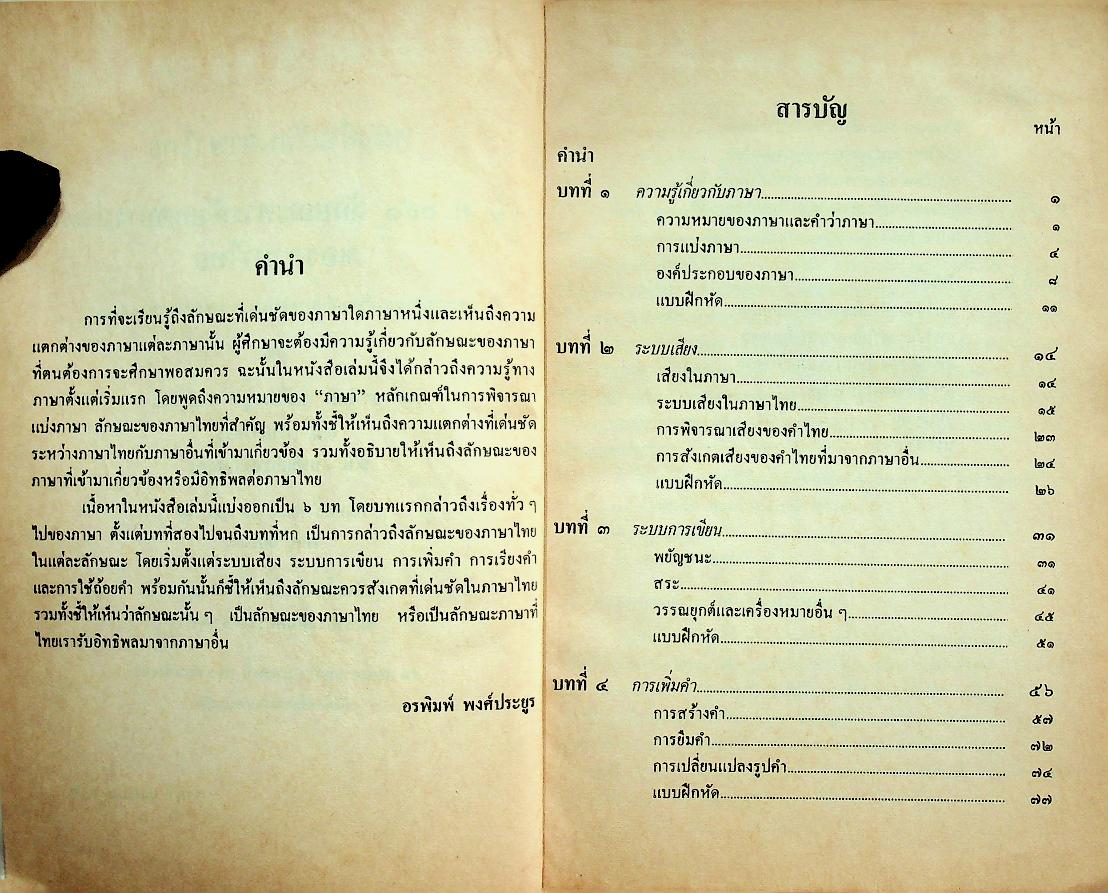 คำนำ
การที่จะเรียนรู้ถึงลักษณะที่เด่นชัดของภาษาใดภาษาหนึ่งและเห็นถึงความ
แตกต่างของภาษาแต่ละภาษานั้น ผู้ศึกษาจะต้องมีความรู้เกี่ยวกับลักษณะของภาษา
ที่ตนต้องการจะศึกษาพอสมควร ฉะนั้นในหนังสือเล่มนี้จึงได้กล่าวถึงความรู้ทาง
ภาษาตั้งแต่เริ่มแรก โดยพูดถึงความหมายของ “ภาษา” หลักเกณฑ์ในการพิจารณา
แบ่งภาษา ลักษณะของภาษาไทยที่สำคัญ พร้อมทั้งชี้ให้เห็นถึงความแตกต่างที่เด่นชัด
ระหว่างภาษาไทยกับภาษาอื่นที่เข้ามาเกี่ยวข้อง รวมทั้งอธิบายให้เห็นถึงลักษณะของ
ภาษาที่เข้ามาเกี่ยวข้องหรือมีอิทธิพลต่อภาษาไทย
เนื้อหาในหนังสือเล่มนี้แบ่งออกเป็น ๖ บท โดยบทแรกกล่าวถึงเรื่องทั่ว ๆ
ไปของภาษา ตั้งแต่บทที่สองไปจนถึงบทที่หก เป็นการกล่าวถึงลักษณะของภาษาไทย
ในแต่ละลักษณะ โดยเริ่มตั้งแต่ระบบเสียง ระบบการเขียน การเพิ่มคำ การเรียงคำ
และการใช้ถ้อยคำ พร้อมกันนั้นก็ชี้ให้เห็นถึงลักษณะควรสังเกตที่เด่นชัดในภาษาไทย
รวมทั้งชี้ให้เห็นว่าลักษณะนั้น ๆ เป็นลักษณะของภาษาไทย หรือเป็นลักษณะภาษาที่
ไทยเรารับอิทธิพลมาจากภาษาอื่น
อรพิมพ์ พงศ์ประยูร
สารบัญ
หน้า
คำนำ
บทที่ ๑ ความรู้เกี่ยวกับภาษา ๑
ความหมายของภาษาและคำว่าภาษา ๑
การแบ่งภาษา ๔
องค์ประกอบของภาษา ๘
แบบฝึกหัด ๑๑
บทที่ ๒ ระบบเสียง ๑๔
เสียงในภาษา ๑๔
ระบบเสียงในภาษาไทย ๑๕
การพิจารณาเสียงของคำไทย ๒๓
การสังเกตเสียงของคำไทยที่มาจากภาษาอื่น ๒๔
แบบฝึกหัด ๒๖
บทที่ ๓ ระบบการเขียน ๓๑
พยัญชนะ ๓๑
สระ ๔๑
วรรณยุกต์และเครื่องหมายอื่น ๆ ๔๕
แบบฝึกหัด ๕๑
บทที่ ๔ การเพิ่มคำ ๕๖
การสร้างคำ ๕๗
การยืมคำ ๗๒
การเปลี่ยนแปลงรูปคำ ๗๔
แบบฝึกหัด ๗๗